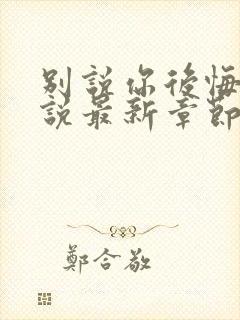 別說你後悔
說最新章節
鄭合敬